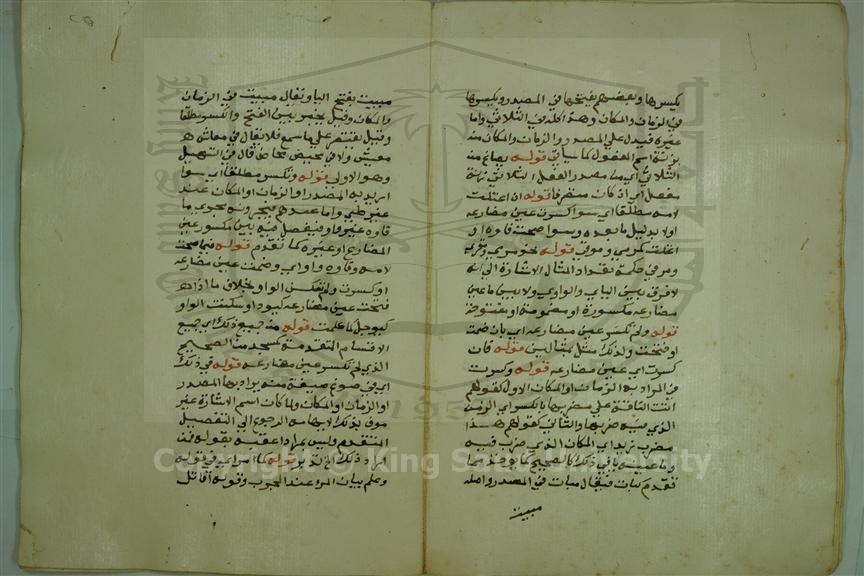 يكسرها وبعضهم يفتحها في المصدر ويكسرها
في الزمان والمكان وهذا كله في الثلاثي واما
غيره فيدل علي المصدر والزمان والمكان منه
بزنة اسم المفعول كما سيأتي قوله يصاغ من
الثلاثي اي من مصدر الفعل الثلاثي بزنة
مفعل اي اذ كان متصرفا قوله ان اعتلت
لامه مطلقا اي سوا كسرت عين مضارعه
اولا بدليل ما بعده وسوا صحت فاوه او
اعتلت كمرمي وموقي قوله نحو مرمي ومغزي
ومرقي حكمة تعداد المثال الاشارة الي انه
لا فرق بين اليائي والواوي ولا بين ما عين
مضارعه مكسورة او مضمومة او مفتوحة
قوله ولم تكسر عين مضارعه اي بان ضمت
او فتحت ولذلك مثل بمثالين قوله فان
كسرت اي عين مضارعه قوله وكسرت
في المراد به الزمان او المكان الاول كقولهم
اتت الناقة علي مضربها بالكسر اي الزمن
الذي فيه ضربها والثاني كقولهم هذا
مضرب زيد اي المكان الذي ضرب فيه
وما عينه يا في ذلك كالصحيح كما يوخذ مما
تقدم كبات فيقال مبات في المصدر واصله
مبيت
مبيت بفتح اليا ويقال مبيت في الزمان
والمكان وقيل يخير بين الفتح والكسر مطلقا
وقيل يقتصر علي ما سمع فلا يقال في معاش
معيش ولا في محيض محاض قال في التسهيل
وهو الاولي قوله وتكسر مطلقا اي سوا
اريد به المصدر او الزمان او المكان عند
غير طيي واما عندهم فيجرونه مجري ما
فاوه غير واو فيفصل فيه بين مكسور عين
المضارع او غيره كما تقدم قوله فيما صحت
لامه وفاوه واو اي وضمت عين مضارعه
او كسرت ولم تعكس الواو بخلاف ما اذا
فتحت عين مضارعه كيود او سكنت الواو
كيوجل كما علمت قوله من جميع ذلك اي جميع
الاقسام المتقدمة كمسجد من الصحيح
الذي لم تكسر عين مضارعه قوله في ذلك
اي في صوغ صيغة منه يراد بها المصدر
او الزمان او المكان ولما كان اسم الاشارة غير
موف بذلك لايهامه الرجوع الي التفصيل
المتقدم وليس بمراد اعقبه بقوله فمن
اراد ذلك الخ قوله كما مر اي في قوله
وعلم بيان المرء عند المجرب وقوله اقاتل